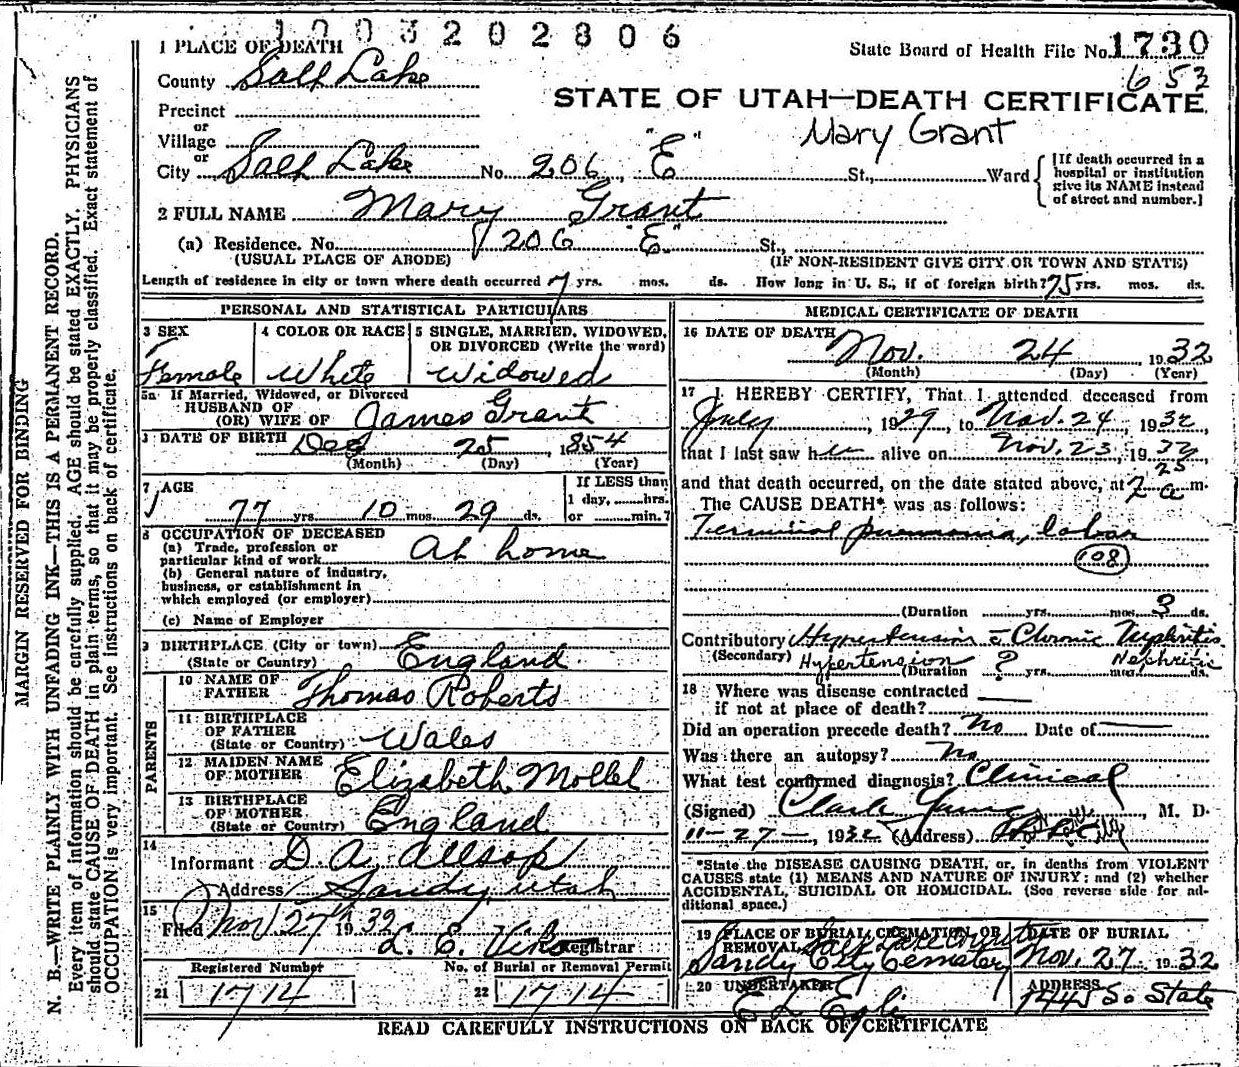 1003202806
1 PLACE OF DEATH
State Board of Health File No. 1730
653
County Salt Lake
STATE OF UTAH—DEATH CERTIFICATE
Precinct
Mary Grant
or
Village
or
City Salt Lake No. 206 "E" St., Ward
[If death occurred in a hospital or institution give its NAME instead of street and number.]
2 FULL NAME Mary Grant
(a) Residence. No. 206 "E" St.,
(USUAL PLACE OF ABODE) (IF NON-RESIDENT GIVE CITY OR TOWN AND STATE)
Length of residence in city or town where death occurred 7 yrs. mos. ds. How long in U. S., if of foreign birth? 75 yrs. mos. ds.
PERSONAL AND STATISTICAL PARTICULARS
3 SEX
Female
4 COLOR OR RACE
White
5 SINGLE, MARRIED, WIDOWED,
OR DIVORCED (Write the word)
Widowed
5a If Married, Widowed, or Divorced
HUSBAND OF
(OR) WIFE OF James Grant
DATE OF BIRTH Dec 25, 1854
(Month) (Day) (Year)
7 AGE
77 yrs 10 mos. 29 ds.
If LESS than
1 day, hrs.
or min.?
8 OCCUPATION OF DECEASED
(a) Trade, profession or
particular kind of work At home
(b) General nature of industry,
business, or establishment in
which employed (or employer)
(c) Name of Employer
9 BIRTHPLACE (City or town)
(State or Country) England
PARENTS
10 NAME OF
FATHER Thomas Roberts
11 BIRTHPLACE
OF FATHER
(State or Country) Wales
12 MAIDEN NAME
OF MOTHER Elizabeth Mollel
13 BIRTHPLACE
OF MOTHER
(State or Country) England
14
Informant D A Allsop
Address Sandy, Utah
15
Filed Nov 27th 1932
L. E. Registrar
Registered Number
21 1714
No. of Burial or Removal Permit
22 1714
MEDICAL CERTIFICATE OF DEATH
16 DATE OF DEATH
Nov. 24, 1932
(Month) (Day) (Year)
17 I HEREBY CERTIFY, That I attended deceased from
July, 1929, to Nov. 24, 1932,
that I last saw her alive on Nov. 23, 1932,
25
and that death occurred, on the date stated above, at 7 a m.
The CAUSE DEATH* was as follows:
Terminal pneumonia, lobar
108
(Duration yrs. mos. 3 ds.
Contributory Hypertension c Chronic Nephritis
(Secondary) Hypertension (Duration ? yrs. mos. ds.
Nephritis
18 Where was disease contracted
if not at place of death?
Did an operation precede death? No Date of
Was there an autopsy? No
What test confirmed diagnosis? Clinical
(Signed) Clark, M. D.
11-27-, 1932 (Address)
*State the DISEASE CAUSING DEATH, or, in deaths from VIOLENT
CAUSES state (1) MEANS AND NATURE OF INJURY; and (2) whether
ACCIDENTAL, SUICIDAL OR HOMICIDAL. (See reverse side for ad-
ditional space.)
19 PLACE OF BURIAL, CREMATION, OR
REMOVAL Salt Lake County
Sandy City Cemetery
DATE OF BURIAL
Nov. 27 1932
20 UNDERTAKER
E L Egli
ADDRESS
1445 So State
READ CAREFULLY INSTRUCTIONS ON BACK OF CERTIFICATE
MARGIN RESERVED FOR BINDING
N. B.—WRITE PLAINLY WITH UNFADING INK—THIS IS A PERMANENT RECORD.
Every item of information should be carefully supplied. AGE should be stated EXACTLY. PHYSICIANS
should state CAUSE OF DEATH in plain terms, so that it may be properly classified. Exact statement of
OCCUPATION is very important. See instructions on back of certificate.